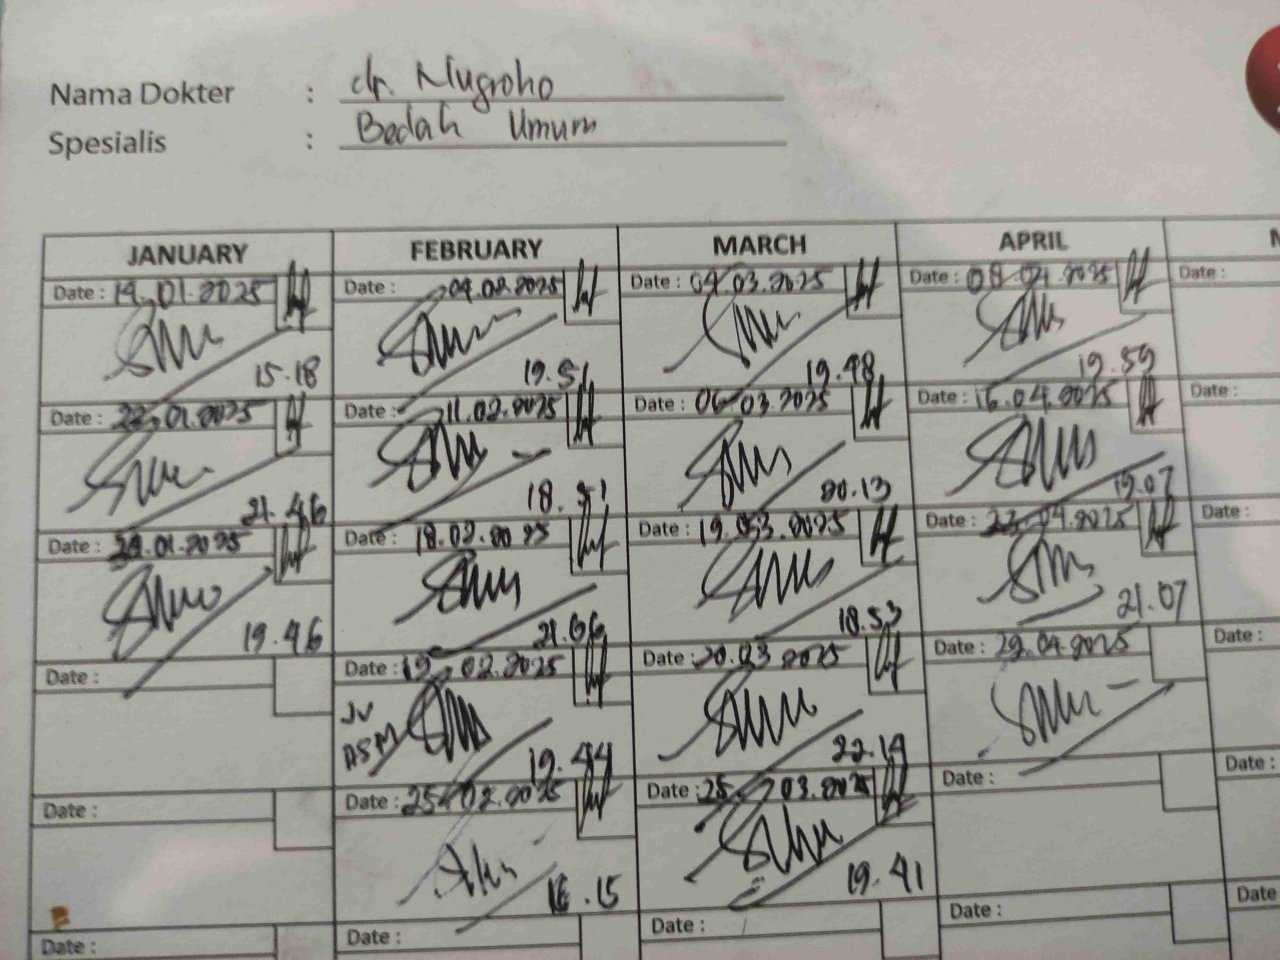 Nama Dokter : dr. Nugroho
Spesialis : Bedah Umum
JANUARY FEBRUARY MARCH APRIL
Date : 14.01.2025 Date : 04.02.2025 Date : 04.03.2025 Date : 08.04.2025 Date :
15.18 19.51 19.48 19.59
Date : 22.01.2025 Date : 11.02.2025 Date : 06 03.2025 Date : 16.04.2025 Date :
21.46 18.51 20.13 19.07
Date : 29.01.2025 Date : 18.02.2025 Date : 19.03.2025 Date : 22.04.2025 Date :
19.46 21.06 18.53 21.07
Date : Date : 19.02.2025 Date : 20.03 2025 Date : 29.04.2025 Date :
JV
ASM
19.44 22.19
Date : Date : 25.02.2025 Date : 25.03.2025 Date : Date :
16.15 19.41
Date : Date : Date : Date : Date